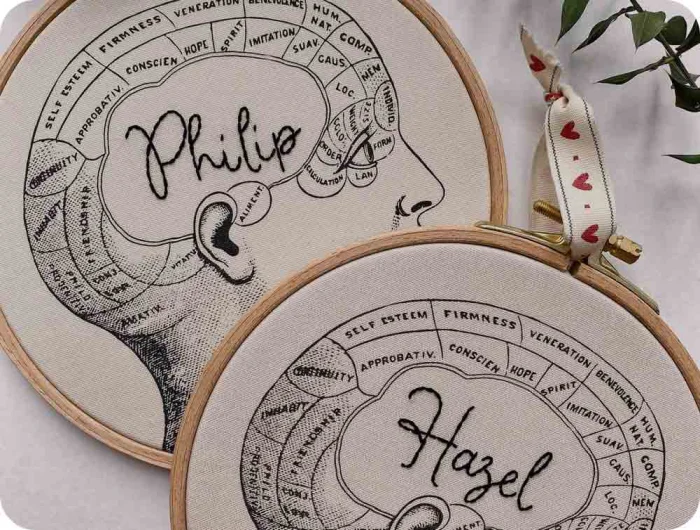 SELF ESTEEM
FIRMNESS
VENERATION
BENEVOLENCE
HUM.
NAT.
COMP.
MEN
INDIVID.
APPROBATIV.
CONSCIEN
HOPE
SPIRIT
IMITATION
SUAV.
CAUS.
LOC.
SIZE
WEIGHT
COLO.
ORDER
FORM
CALCULATION
LAN.
CONTINUITY
INHABIT
FRIENDSHIP
PHILO
PROGENITIV.
CONJ
LOVE
AMATIV.
ALIMENT.
Philip
SELF ESTEEM
FIRMNESS
VENERATION
BENEVOLENCE
HUM.
NAT.
COMP.
MEN
APPROBATIV.
CONSCIEN
HOPE
SPIRIT
IMITATION
SUAV.
CAUS.
LOC.
CONTINUITY
INHABIT
FRIENDSHIP
PHILO
CONJ
LOVE
Hazel